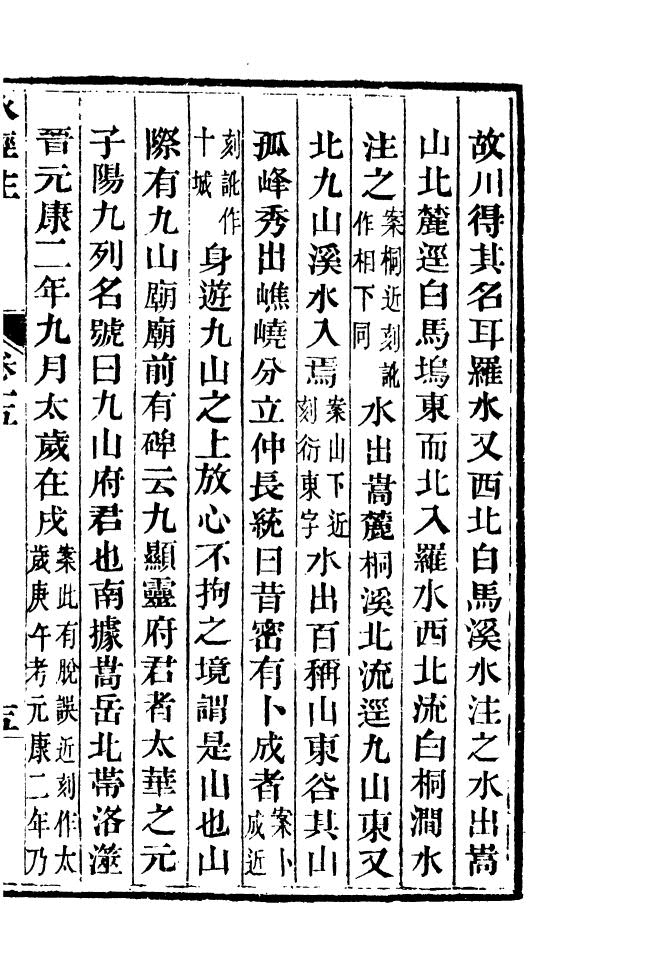 故川得其名耳羅水又西北白馬溪水注之水出嵩
山北麓逕白馬塢東而北入羅水西北流白桐澗水
注之案桐近刻訛作相下同水出嵩麓桐溪北流逕九山東又
北九山溪水入焉案山下近刻衍東字水出百稱山東谷其山
孤峰秀出嶕嶢分立仲長統曰昔密有卜成者案卜成近
刻訛作十城身遊九山之上放心不拘之境謂是山也山
際有九山廟廟前有碑云九顯靈府君者太華之元
子陽九列名號曰九山府君也南據嵩岳北帶洛澨
晉元康二年九月太歲在戌案此有脫誤近刻作太歲庚午考元康二年乃
水經注 卷十五 五